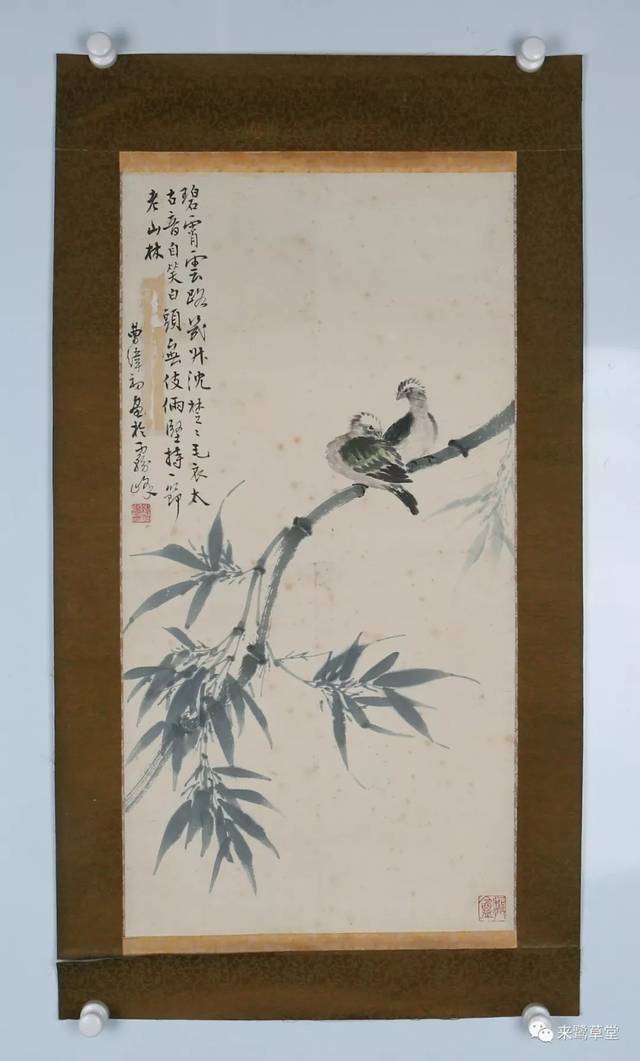 碧霄雲路幾升沈楚〻毛衣太
古音自笑白頭無伎倆堅持一節
老山林
曹緯初畫於霧峰
来鹭草堂